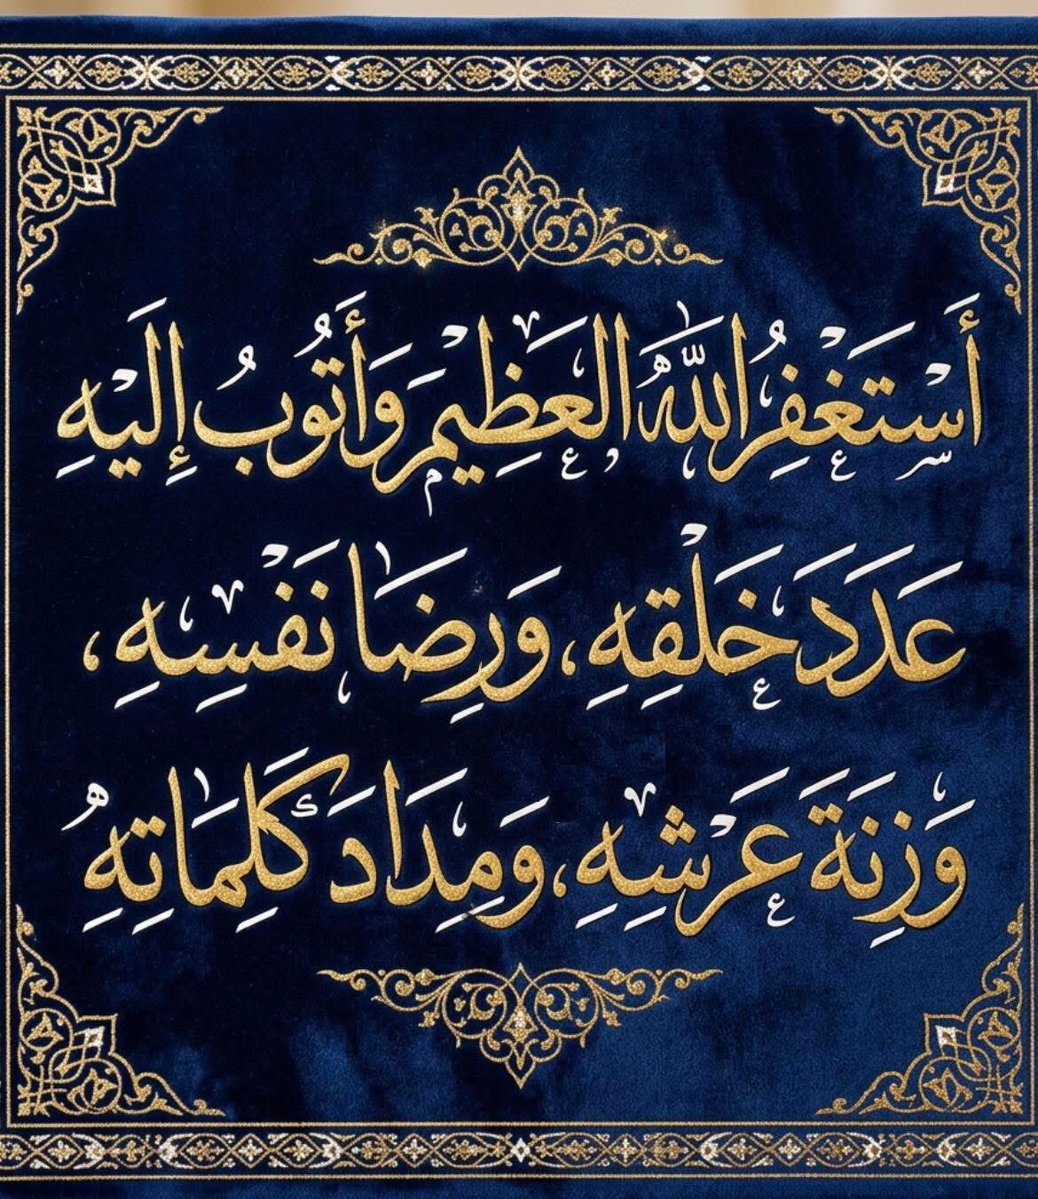 أَسْتَغْفِرُ اللَّهَ الْعَظِيمَ وَأَتُوبُ إِلَيْهِ
عَدَدَ خَلْقِهِ، وَرِضَا نَفْسِهِ،
وَزِنَةَ عَرْشِهِ، وَمِدَادَ كَلِمَاتِهِ